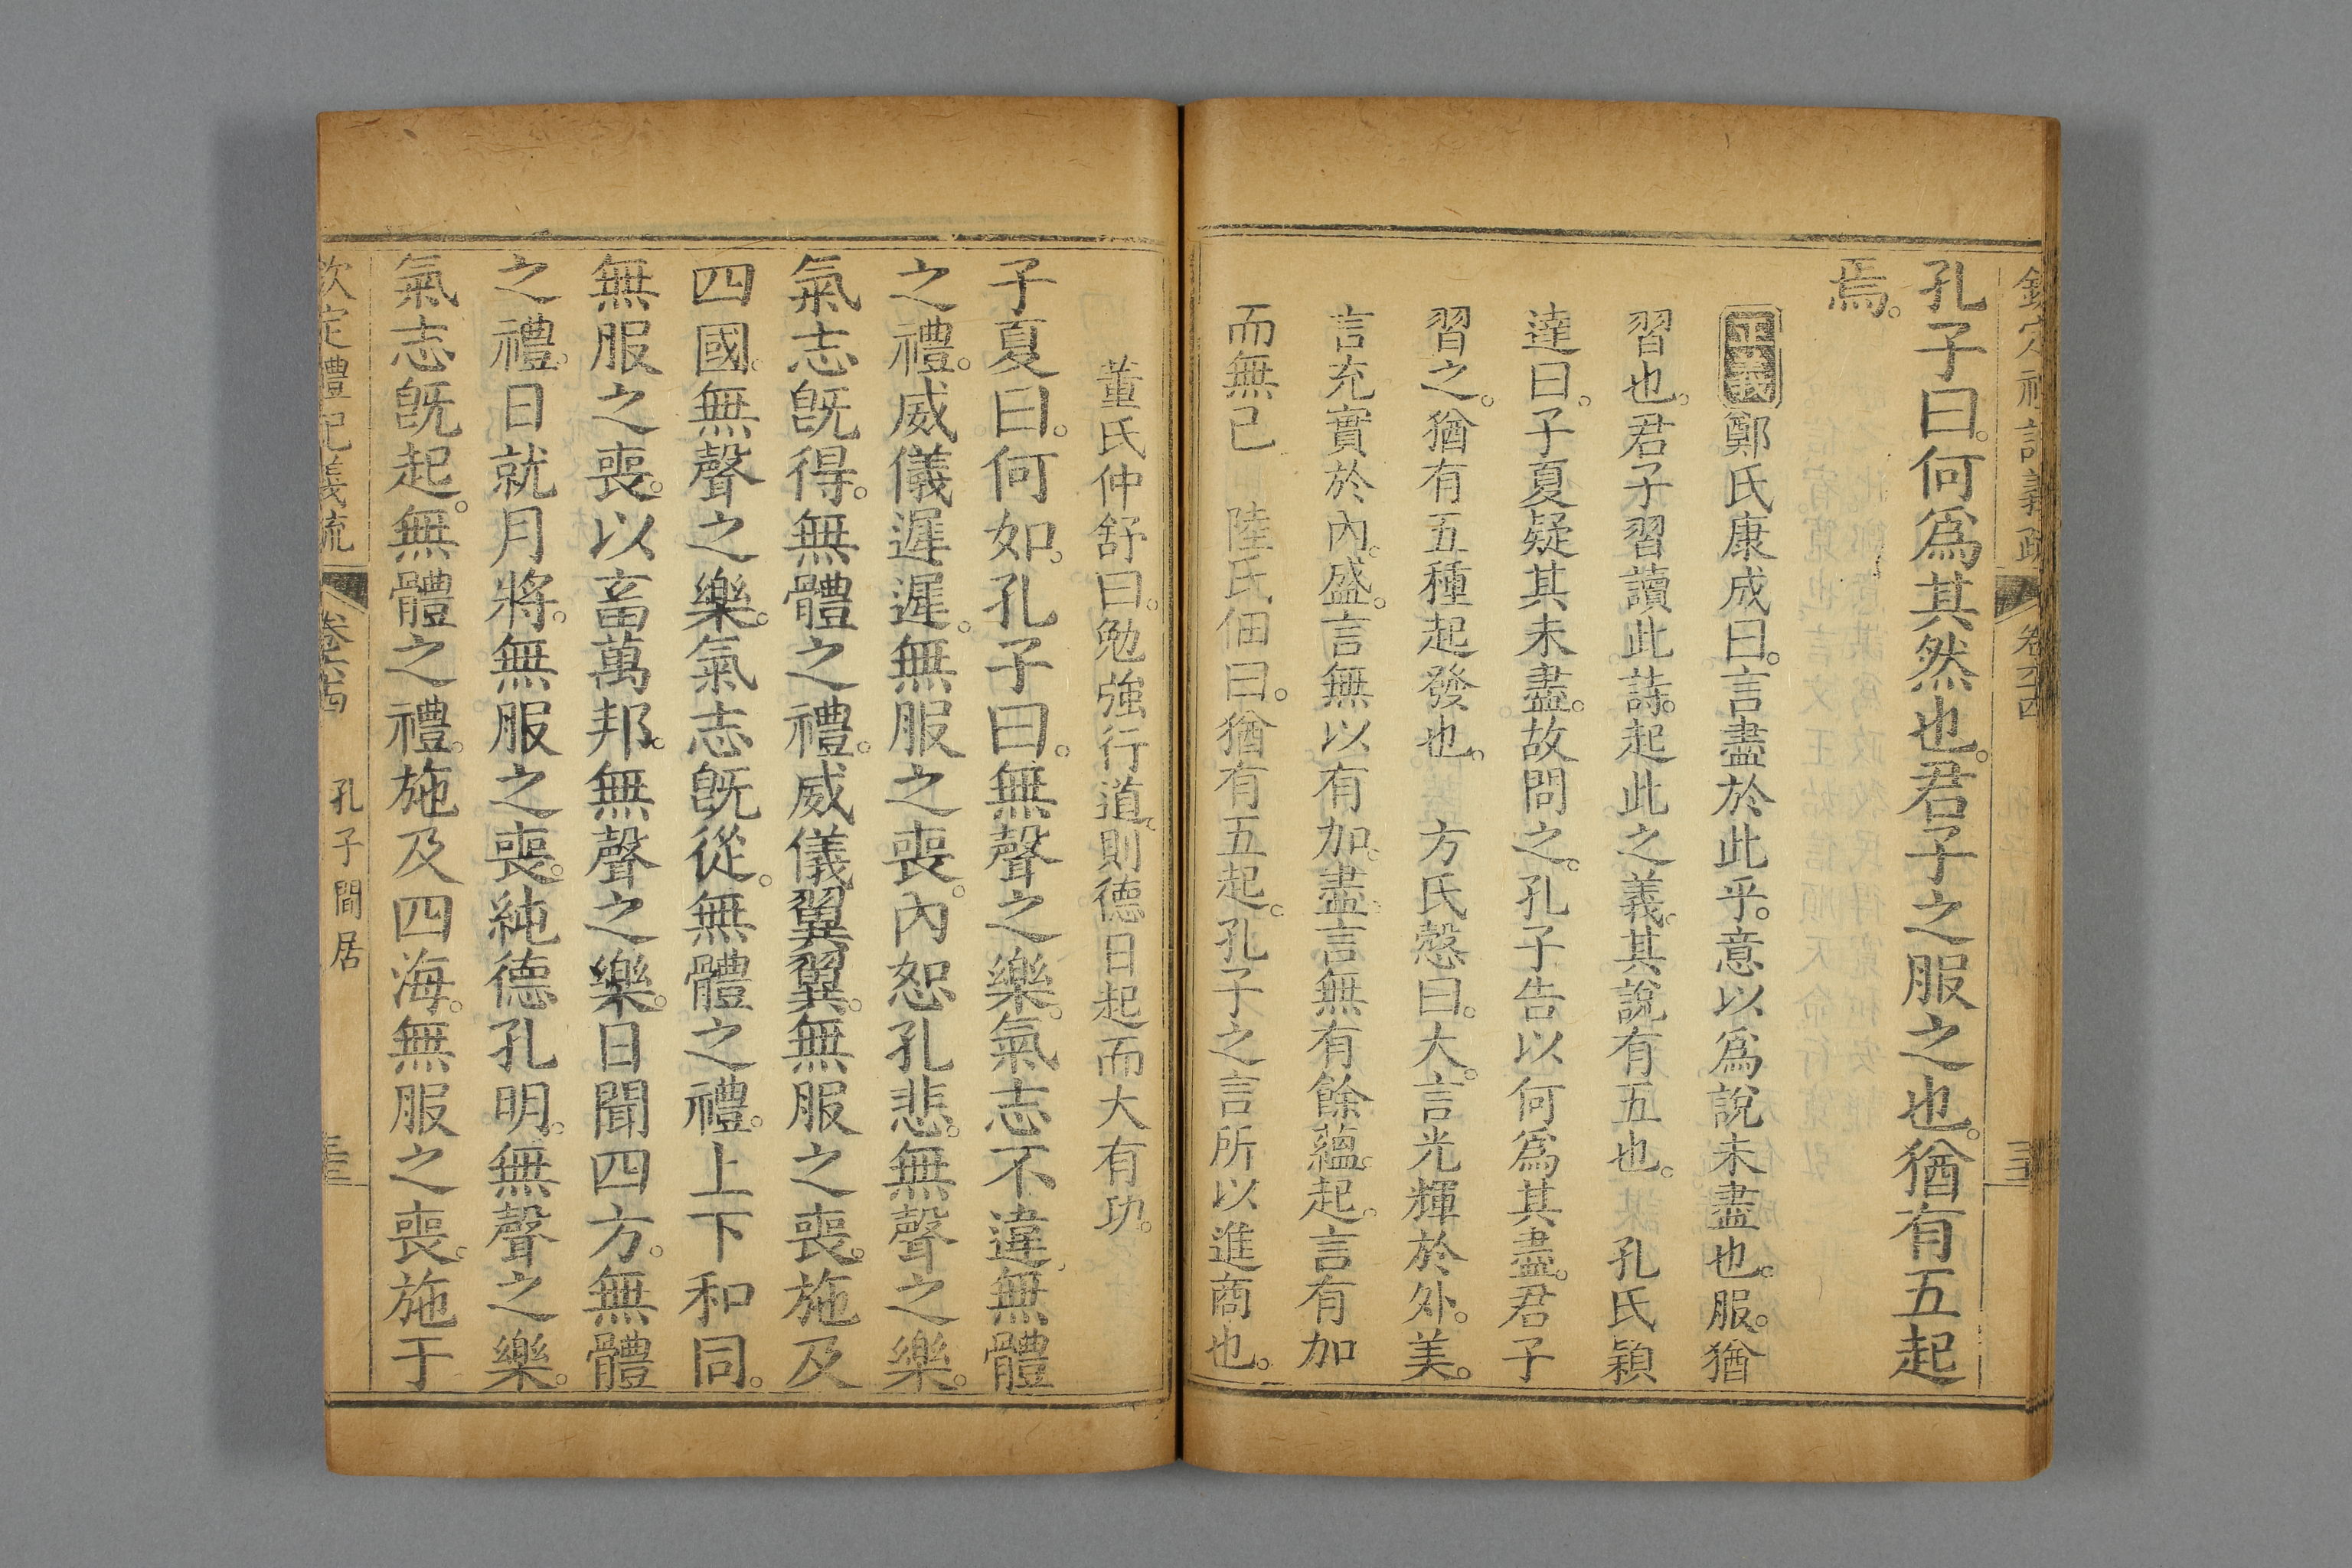 孔子曰。何爲其然也。君子之服之也。猶有五起
焉。
正義 鄭氏康成曰。言盡於此乎。意以爲說未盡也。服。猶
習也。君子習讀此詩。起此之義。其說有五也。 孔氏穎
達曰。子夏疑其未盡。故問之。孔子告以何爲其盡。君子
習之。猶有五種起發也。 方氏慤曰。大。言光輝於外。美。
言充實於內。盛。言無以有加。盡言無有餘蘊。起。言有加
而無已 陸氏佃曰。猶有五起。孔子之言所以進商也。
董氏仲舒曰。勉強行道。則德日起而大有功。
子夏曰。何如。孔子曰。無聲之樂。氣志不違。無體
之禮。威儀遲遲。無服之喪。內恕孔悲。無聲之樂。
氣志旣得。無體之禮。威儀翼翼。無服之喪。施及
四國。無聲之樂。氣志旣從。無體之禮。上下和同。
無服之喪。以畜萬邦。無聲之樂。日聞四方。無體
之禮。日就月將。無服之喪。純德孔明。無聲之樂。
氣志旣起。無體之禮。施及四海。無服之喪。施于
欽定禮記義疏 卷六十四 孔子閒居